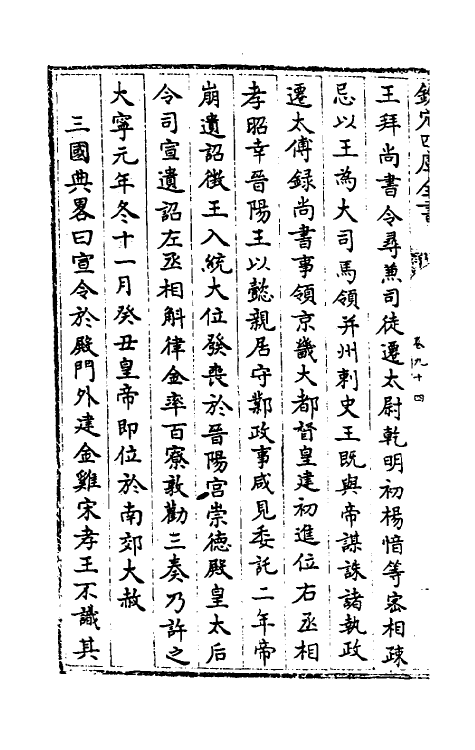 欽定四庫全書
卷九十四
王拜尚書令尋兼司徒遷太尉乾明初楊愔等宻相疎
忌以王為大司馬領并州刺史王既與帝謀誅諸執政
遷太傅録尚書事領京畿大都督皇建初進位右丞相
孝昭幸晉陽王以懿親居守鄴政事咸見委託二年帝
崩遺詔徵王入統大位發喪於晉陽宫崇徳殿皇太后
令司宣遺詔左丞相斛律金率百寮敦勸三奏乃許之
大寧元年冬十一月癸丑皇帝即位於南郊大赦
三國典畧曰宣令於殿門外建金雞宋孝王不識其